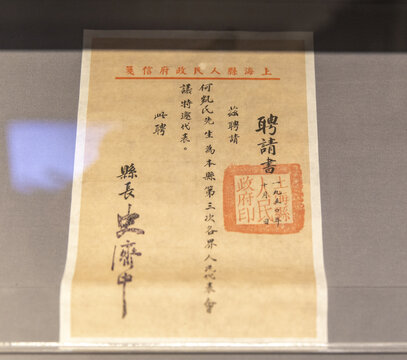 上海縣人民政府信箋
聘請書
上海縣
人民
政府印
茲聘請
何凱氏先生為本縣第三次各界人民代表會
議特邀代表。
此聘
縣長 史濟中